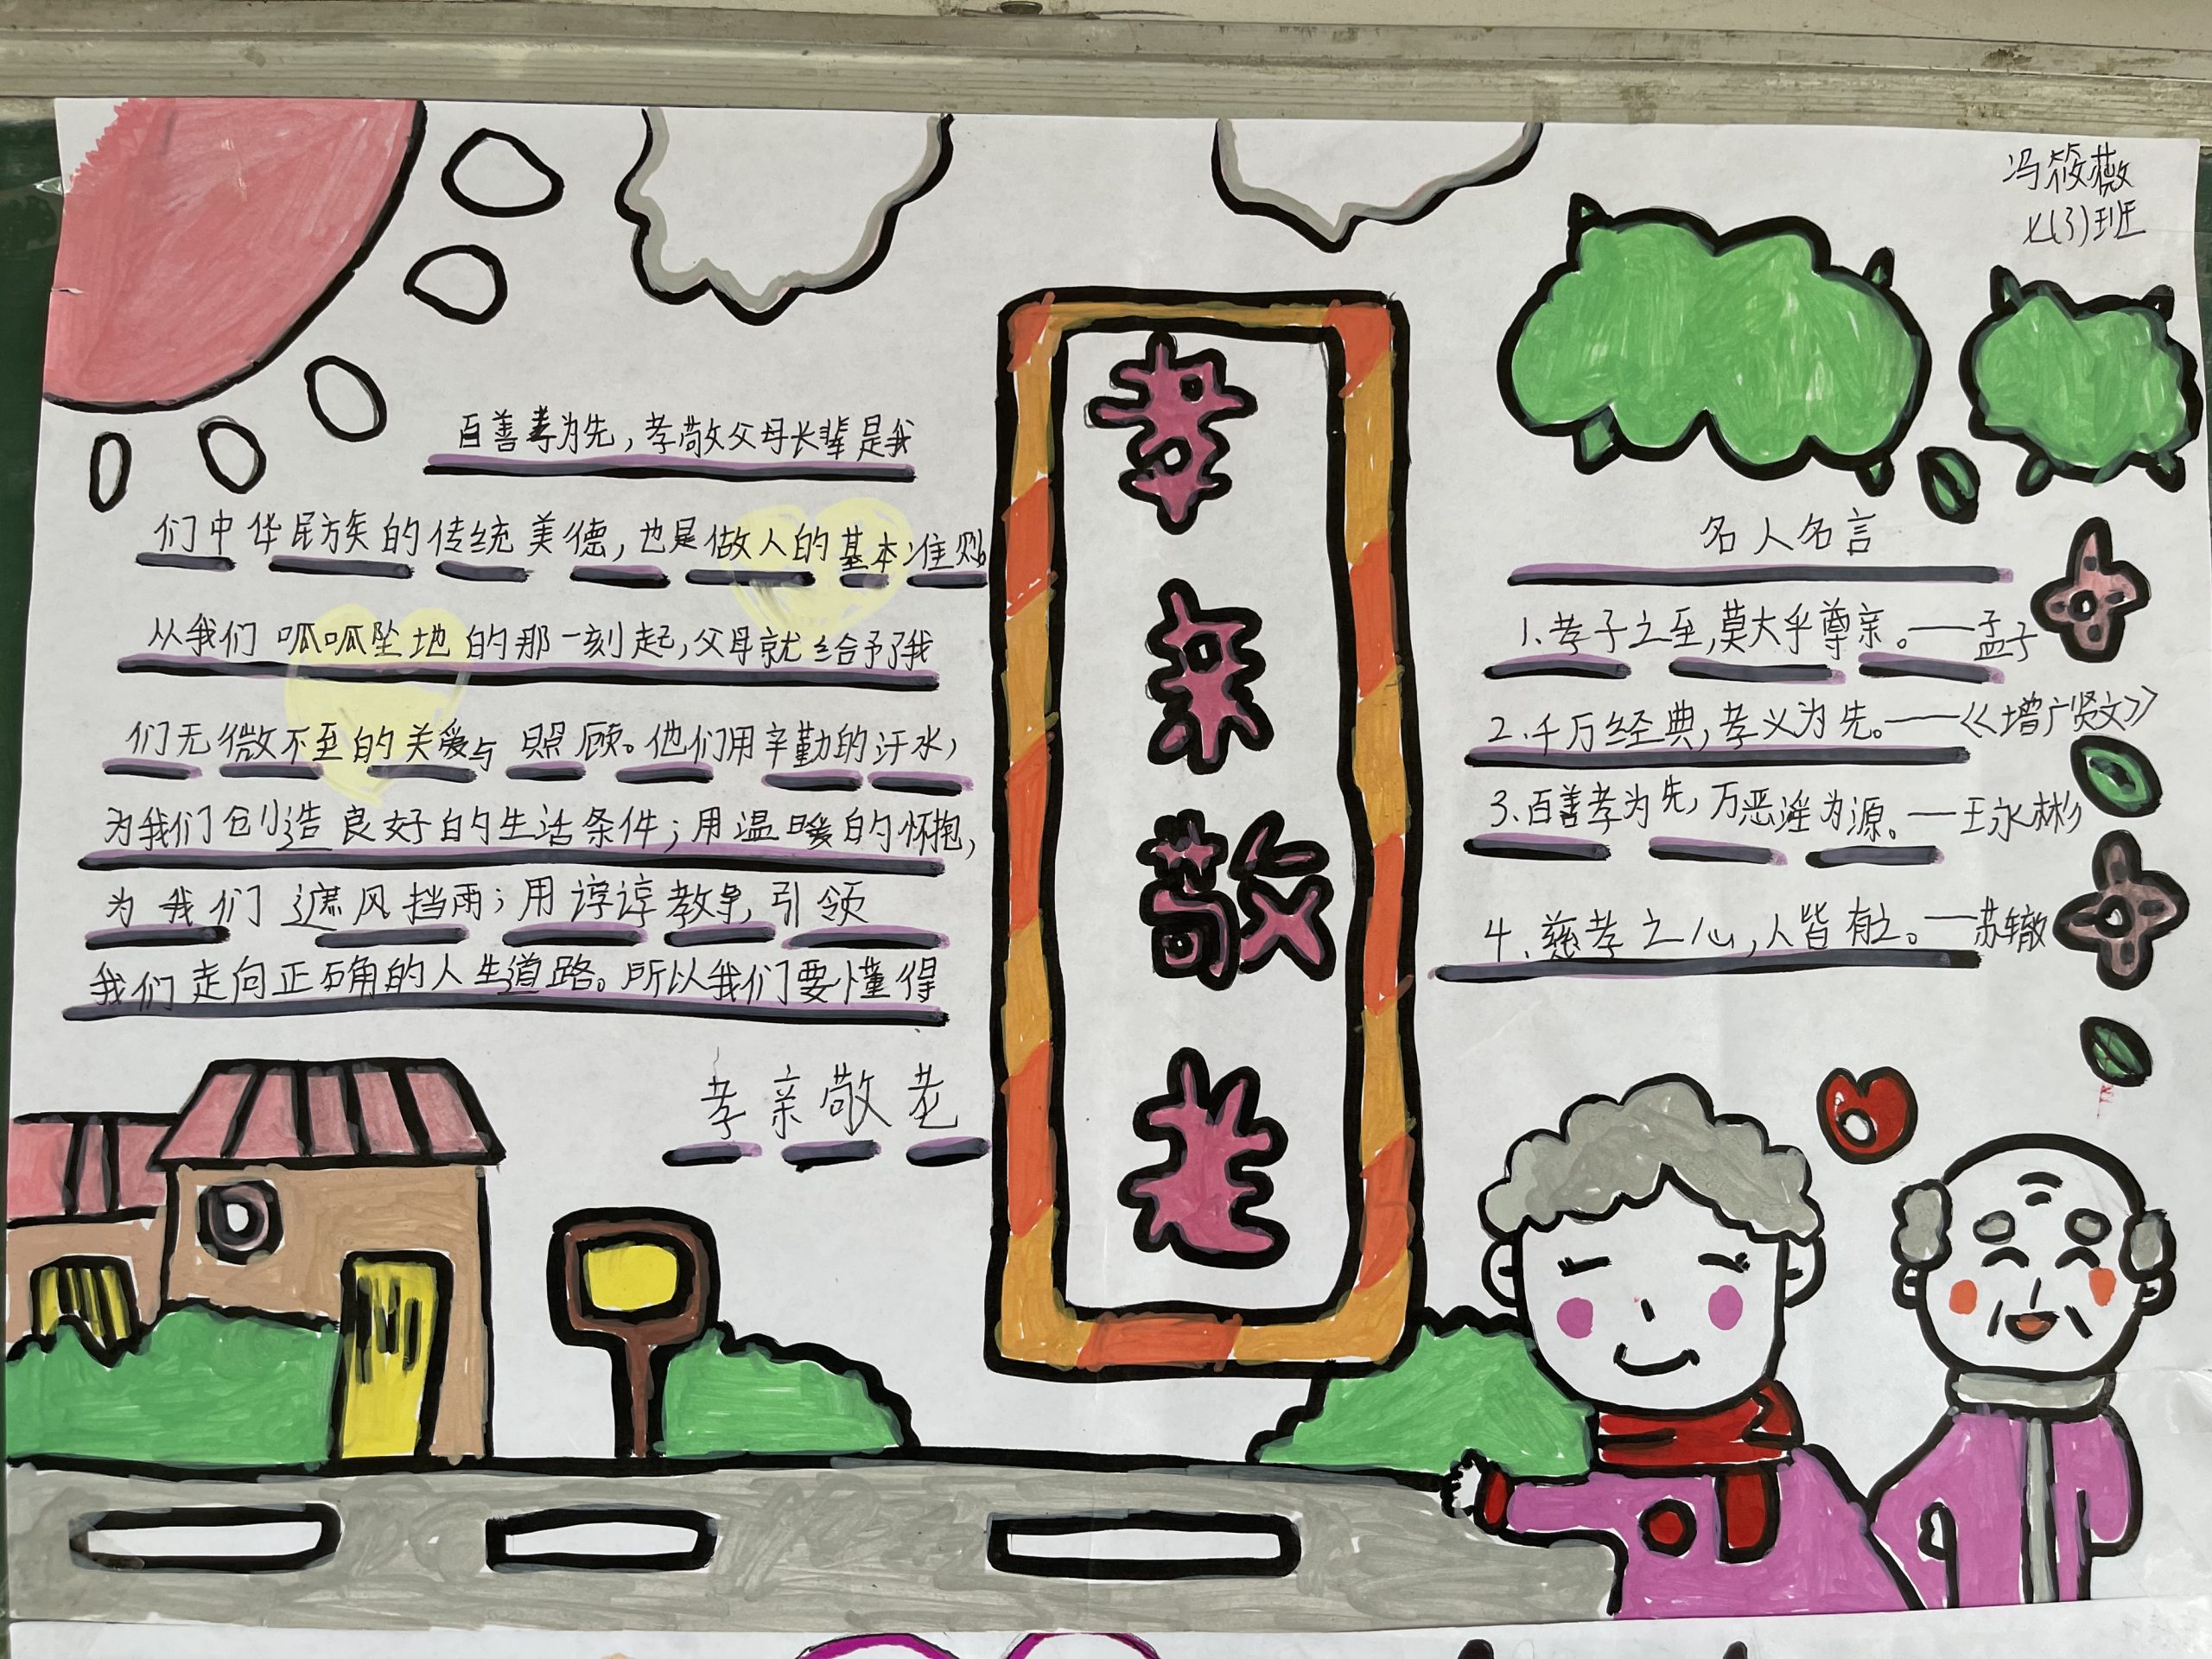 冯筱薇
七(3)班
百善孝为先，孝敬父母长辈是我
们中华民族的传统美德，也是做人的基本准则
从我们呱呱坠地的那一刻起，父母就给予了我
们无微不至的关爱与照顾。他们用辛勤的汗水，
为我们创造良好的生活条件；用温暖的怀抱，
为我们遮风挡雨；用谆谆教导，引领
我们走向正确的人生道路。所以我们要懂得
孝亲敬老
孝
亲
敬
老
名人名言
1.孝子之至，莫大乎尊亲。——孟子
2.千万经典，孝义为先。——《增广贤文》
3.百善孝为先，万恶淫为源。——王永彬
4.慈孝之心，人皆有之。——苏辙